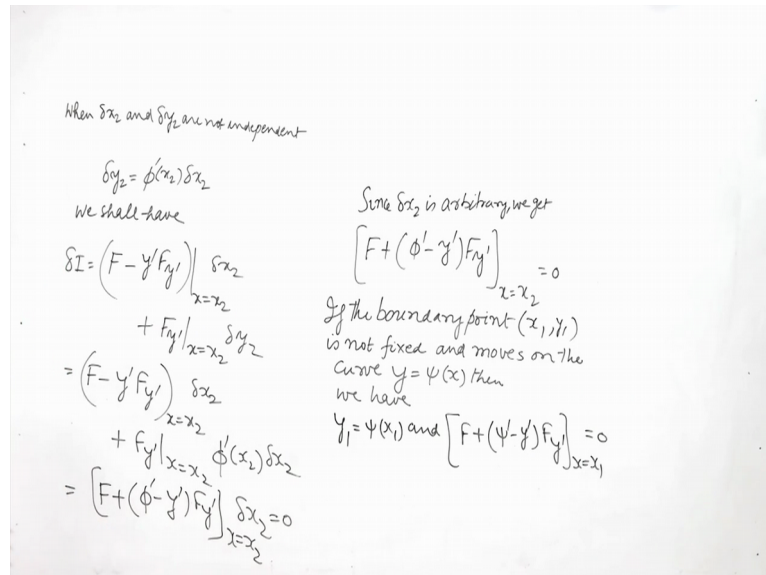 When δx₂ and δy₂ are not independent
δy₂ = ϕ'(x₂)δx₂
We shall have
δI = (F - y'F_y')|_{x=x₂} δx₂
+ F_y'|_{x=x₂} δy₂
= (F - y'F_y')_{x=x₂} δx₂
+ F_y'|_{x=x₂} ϕ'(x₂)δx₂
= [F + (ϕ' - y')F_y']_{x=x₂} δx₂ = 0
Since δx₂ is arbitrary, we get
[F + (ϕ' - y')F_y']_{x=x₂} = 0
If the boundary point (x₁, y₁)
is not fixed and moves on the
curve y = ψ(x) then
we have
y₁ = ψ(x₁) and [F + (ψ' - y')F_y']_{x=x₁} = 0